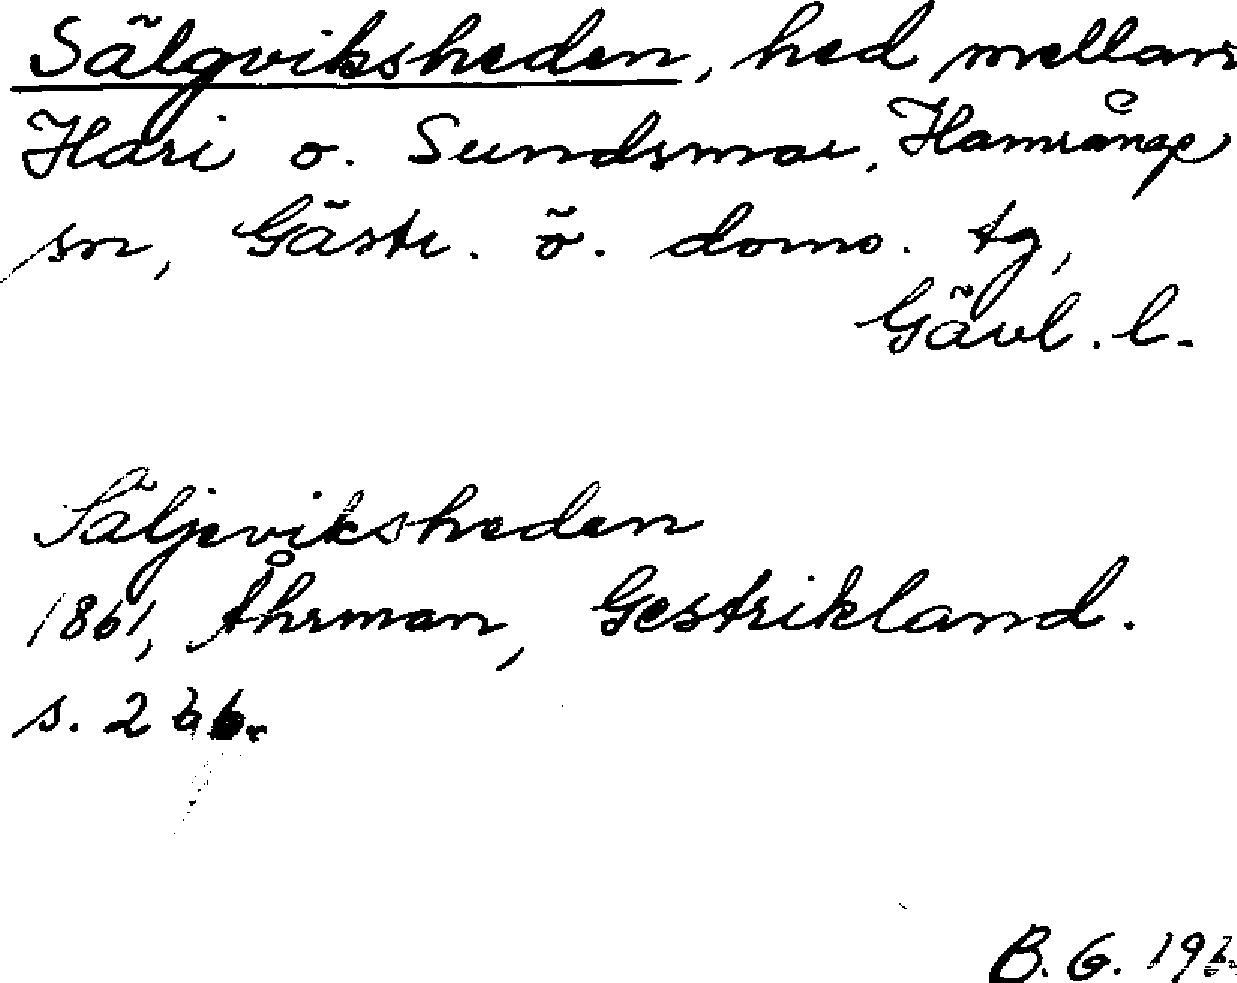 Sälgviksheden, hed mellan
Hari o. Sundsmar, Hamrånge
sn, Gästr. ö. doms. tg,
Gävl. l.
Säljeviksheden
1861, Åhrman, Gestrikland.
s. 266.
B. G. 196